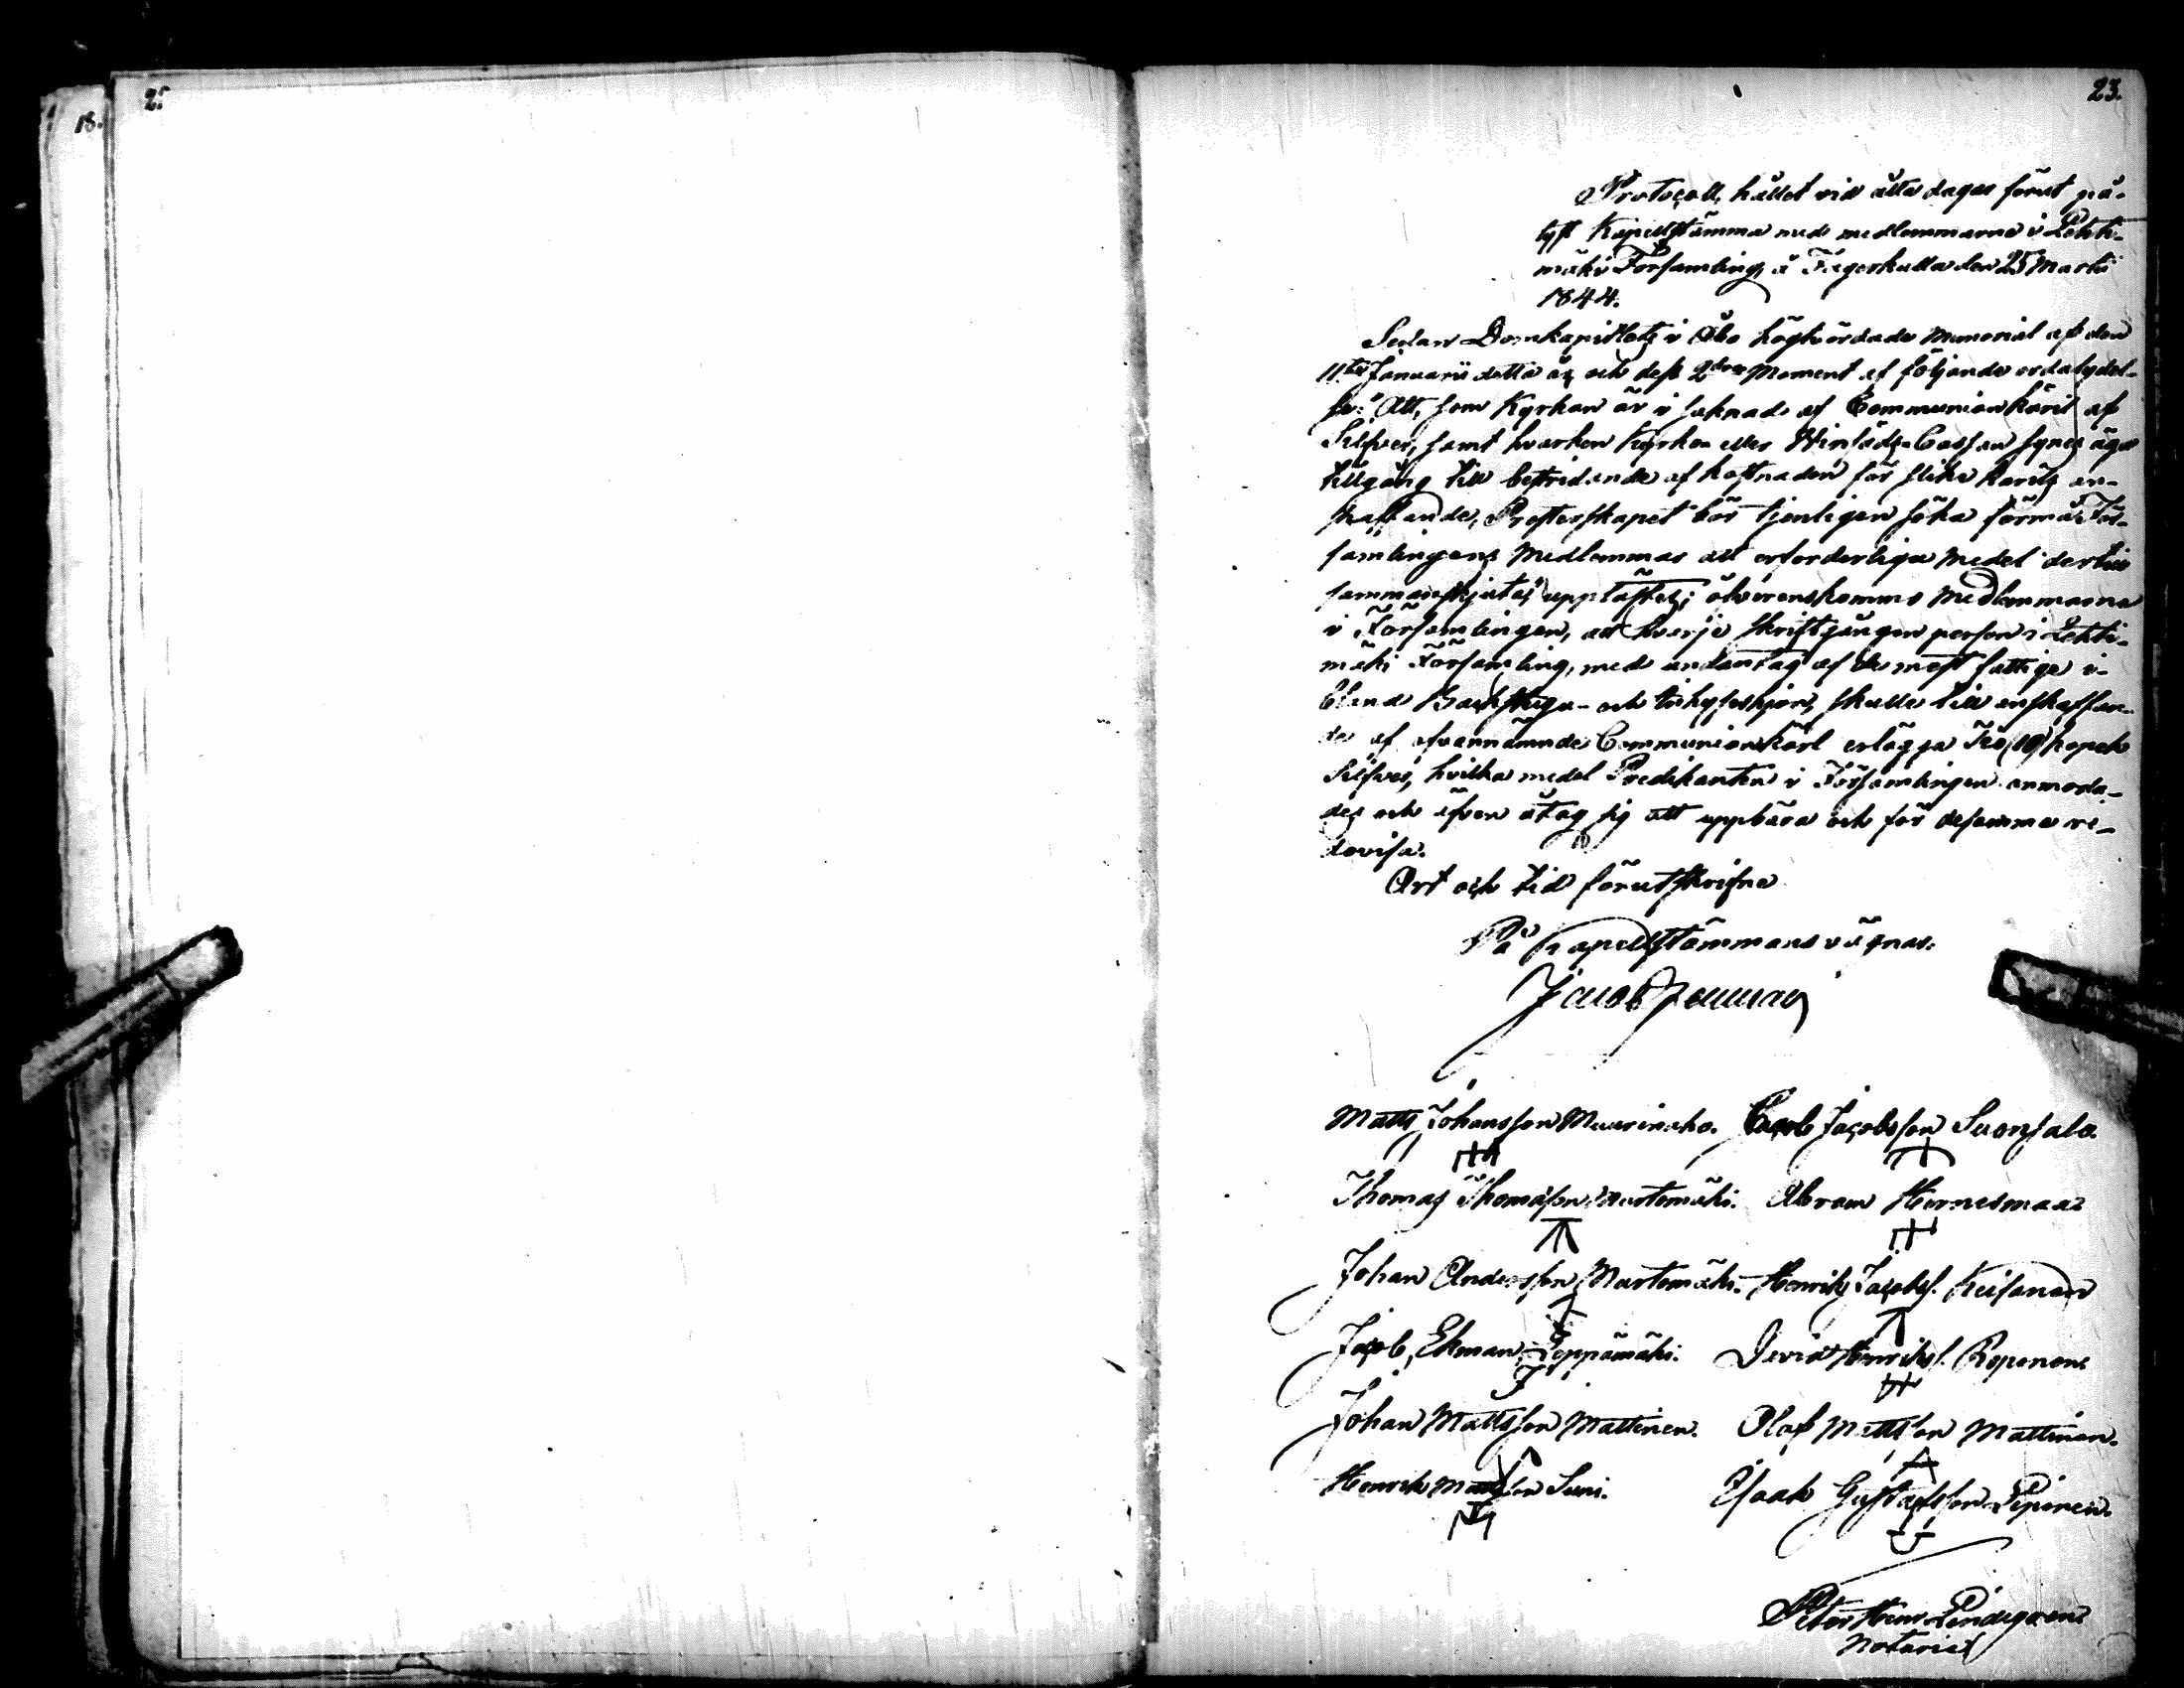 18.
2.
23.
Protocoll, hållet vid åtta dagar förut på-
lyst Kapellstämma med medlemmarne i Lehti-
mäki Församling, å Fägerkulla den 25 Martii
1844.
Sedan Domkapitlets i Åbo högtvördade Memorial af den
11.te Januarii detta år, och dess 2dra Moment af följande ordalydel-
se: "Att, som Kyrkan är i saknad af Communionkäril af
Silfver, samt hvarken Kyrko- eller Winläds-Cassan synes äga
tillgång till bestridande af kostnaden för slike kärils an-
skaffande, Presterskapet bör tjenligen söka förmå För-
samlingens Medlemmar att erforderliga medel dertill
sammanskjuta," upplästes; öfverenskommo Medlemmarne
i Församlingen, att hvarje skriftgången person i Lehti-
mäki Församling, med undantag af de mest fattige i-
bland Backstugu- och inhyseshjon, skulle till anskaffan-
de af ofvannämnde Communionkärl erlägga Tio (10) kopek
Silfver, hvilka medel Predikanten i Församlingen anmoda-
des och äfven åtog sig att uppbära och för desamma re-
dovisa.
Ort och tid förutskrifne
På Kapellstämmans vägnar.
Jacob
Matts Johansson Muurinaho. Jacob Jacobsson Suonsalo.
Thomas Thomasson Martomäki. Abram Hernesmaa
Johan Andersson Martomäki. Henrik Jacobs. Keisanen
Jacob Ekman Leppämäki. David Henriks. Roponen
Johan Mattsson Mattinen. Olof Mattsson Mattinen.
Henrik Mattsson Suni. Isaak Gustafsson Lepinen.
Petter Henr. Lindegren
Notarie